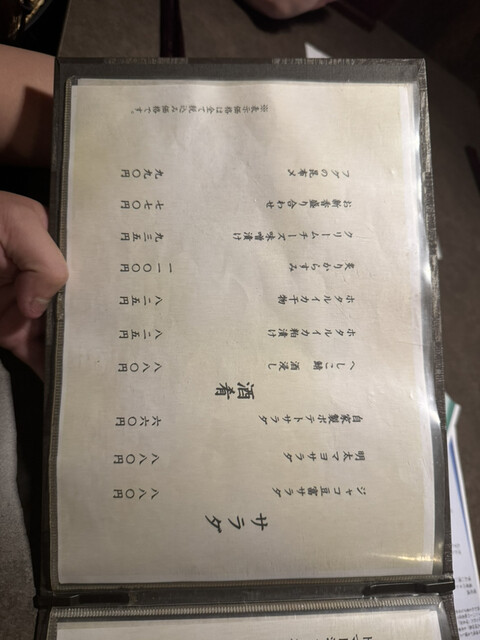 サラダ
ジャコ豆富サラダ 八八〇円
明太マヨサラダ 八八〇円
自家製ポテトサラダ 六六〇円
酒肴
へしこ鯖酒浸し 八八〇円
ホタルイカ粕漬け 八二五円
ホタルイカ干物 八二五円
炙りからすみ 一一〇〇円
クリームチーズ味噌漬け 九三五円
お新香盛り合わせ 七七〇円
フグの昆布〆 九九〇円
※表示価格は全て税込み価格です。